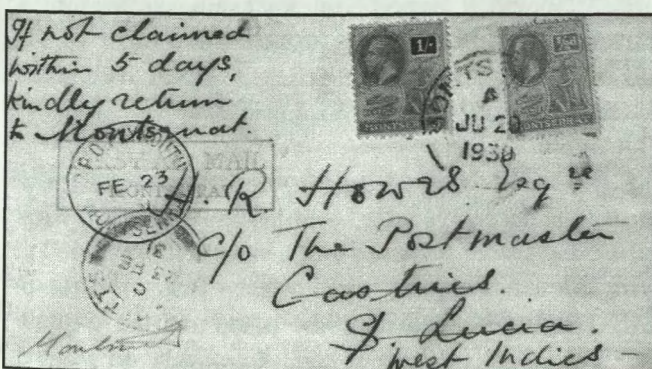 If not claimed
within 5 days,
kindly return
to Montserrat.
1/-
MONTSERRAT
MONTSERRAT
MONTS
A
JU 20
1930
PLYMOUTH
FE 23
MAIL
H. R. Howes Esqre
C/o The Postmaster
Castries.
St. Lucia.
West Indies -
Montserrat